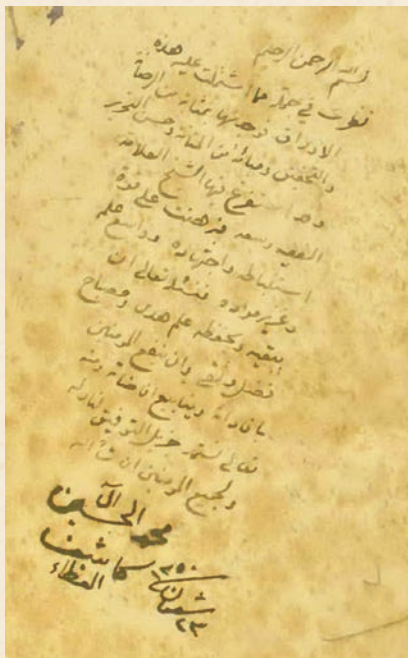 بسم الله الرحمن الرحيم
نظرت في جملة مما اشتملت عليه هذه
الاوراق فوجدتها بمثابة من الرصانة
والتحقيق ومكانة من المتانة وحسن التحرير
وقد استفرغ فيها الشيخ العلامة
الفقيه وسعه فبرهنت على قوة
استنباطه واجتهاده وواسع علمه
وغزير مواده فنسئله تعالى ان
يبقيه ويحفظه علم هدى ومصباح
فضل وتقى وان ينفع المؤمنين
بافاداته وينابيع افاضاته ومنه
تعالى نستمد جزيل التوفيق لنا وله
ولجميع المؤمنين ان شاء الله
محمد الحسين آل
كاشف
الغطاء
١٣٥٠
شعبان
٢٣